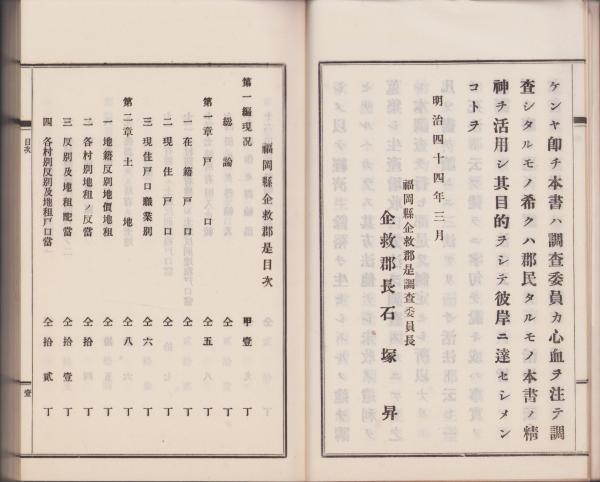 ケンヤ卽チ本書ハ調査委員カ心血ヲ注テ調
査シタルモノ希クハ郡民タルモノ本書ノ精
神チ活用シ其目的ヲシテ彼岸ニ達セシメン
コトヲ
明治四十四年三月
福岡縣企救郡是調査委員長
企救郡長石塚昇
福岡縣企救郡是目次
第一編現況 甲壹丁
總論 仝丁
第一章戸口 仝五丁
一在籍戸口 仝丁
二現住戸口 仝丁
三現住戸口職業別 仝六丁
第二章土地 仝八丁
一地籍反別地價地租 仝拾丁
二各村別地租ノ反當 仝拾丁
三反別及地租配當 仝拾壹丁
四各村別反別及地租戸口當 仝拾貳丁
目次
壹